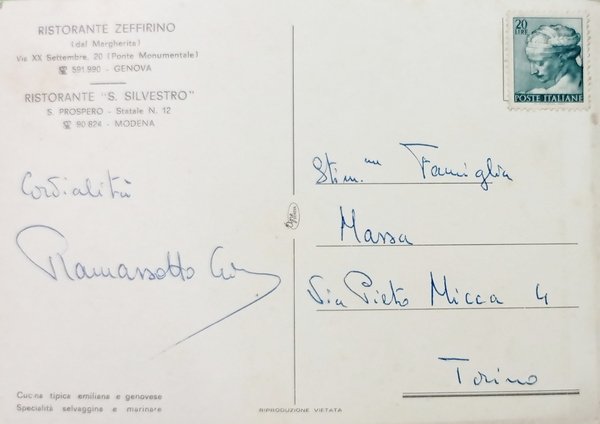 RISTORANTE ZEFFIRINO
(dal Margherita)
Via XX Settembre, 20 (Ponte Monumentale)
☎ 591.990 - GENOVA
RISTORANTE "S. SILVESTRO"
S. PROSPERO - Statale N. 12
☎ 90 824 - MODENA
Cordialità
Ramassotto
Cucina tipica emiliana e genovese
Specialità selvaggina e marinare
20
LIRE
POSTE ITALIANE
Stim.ma Famiglia
Massa
Via Pietro Micca 4
Torino
RIPRODUZIONE VIETATA